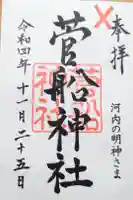 奉拝
河内の明神さま
菅船神社
令和四年十一月二十五日